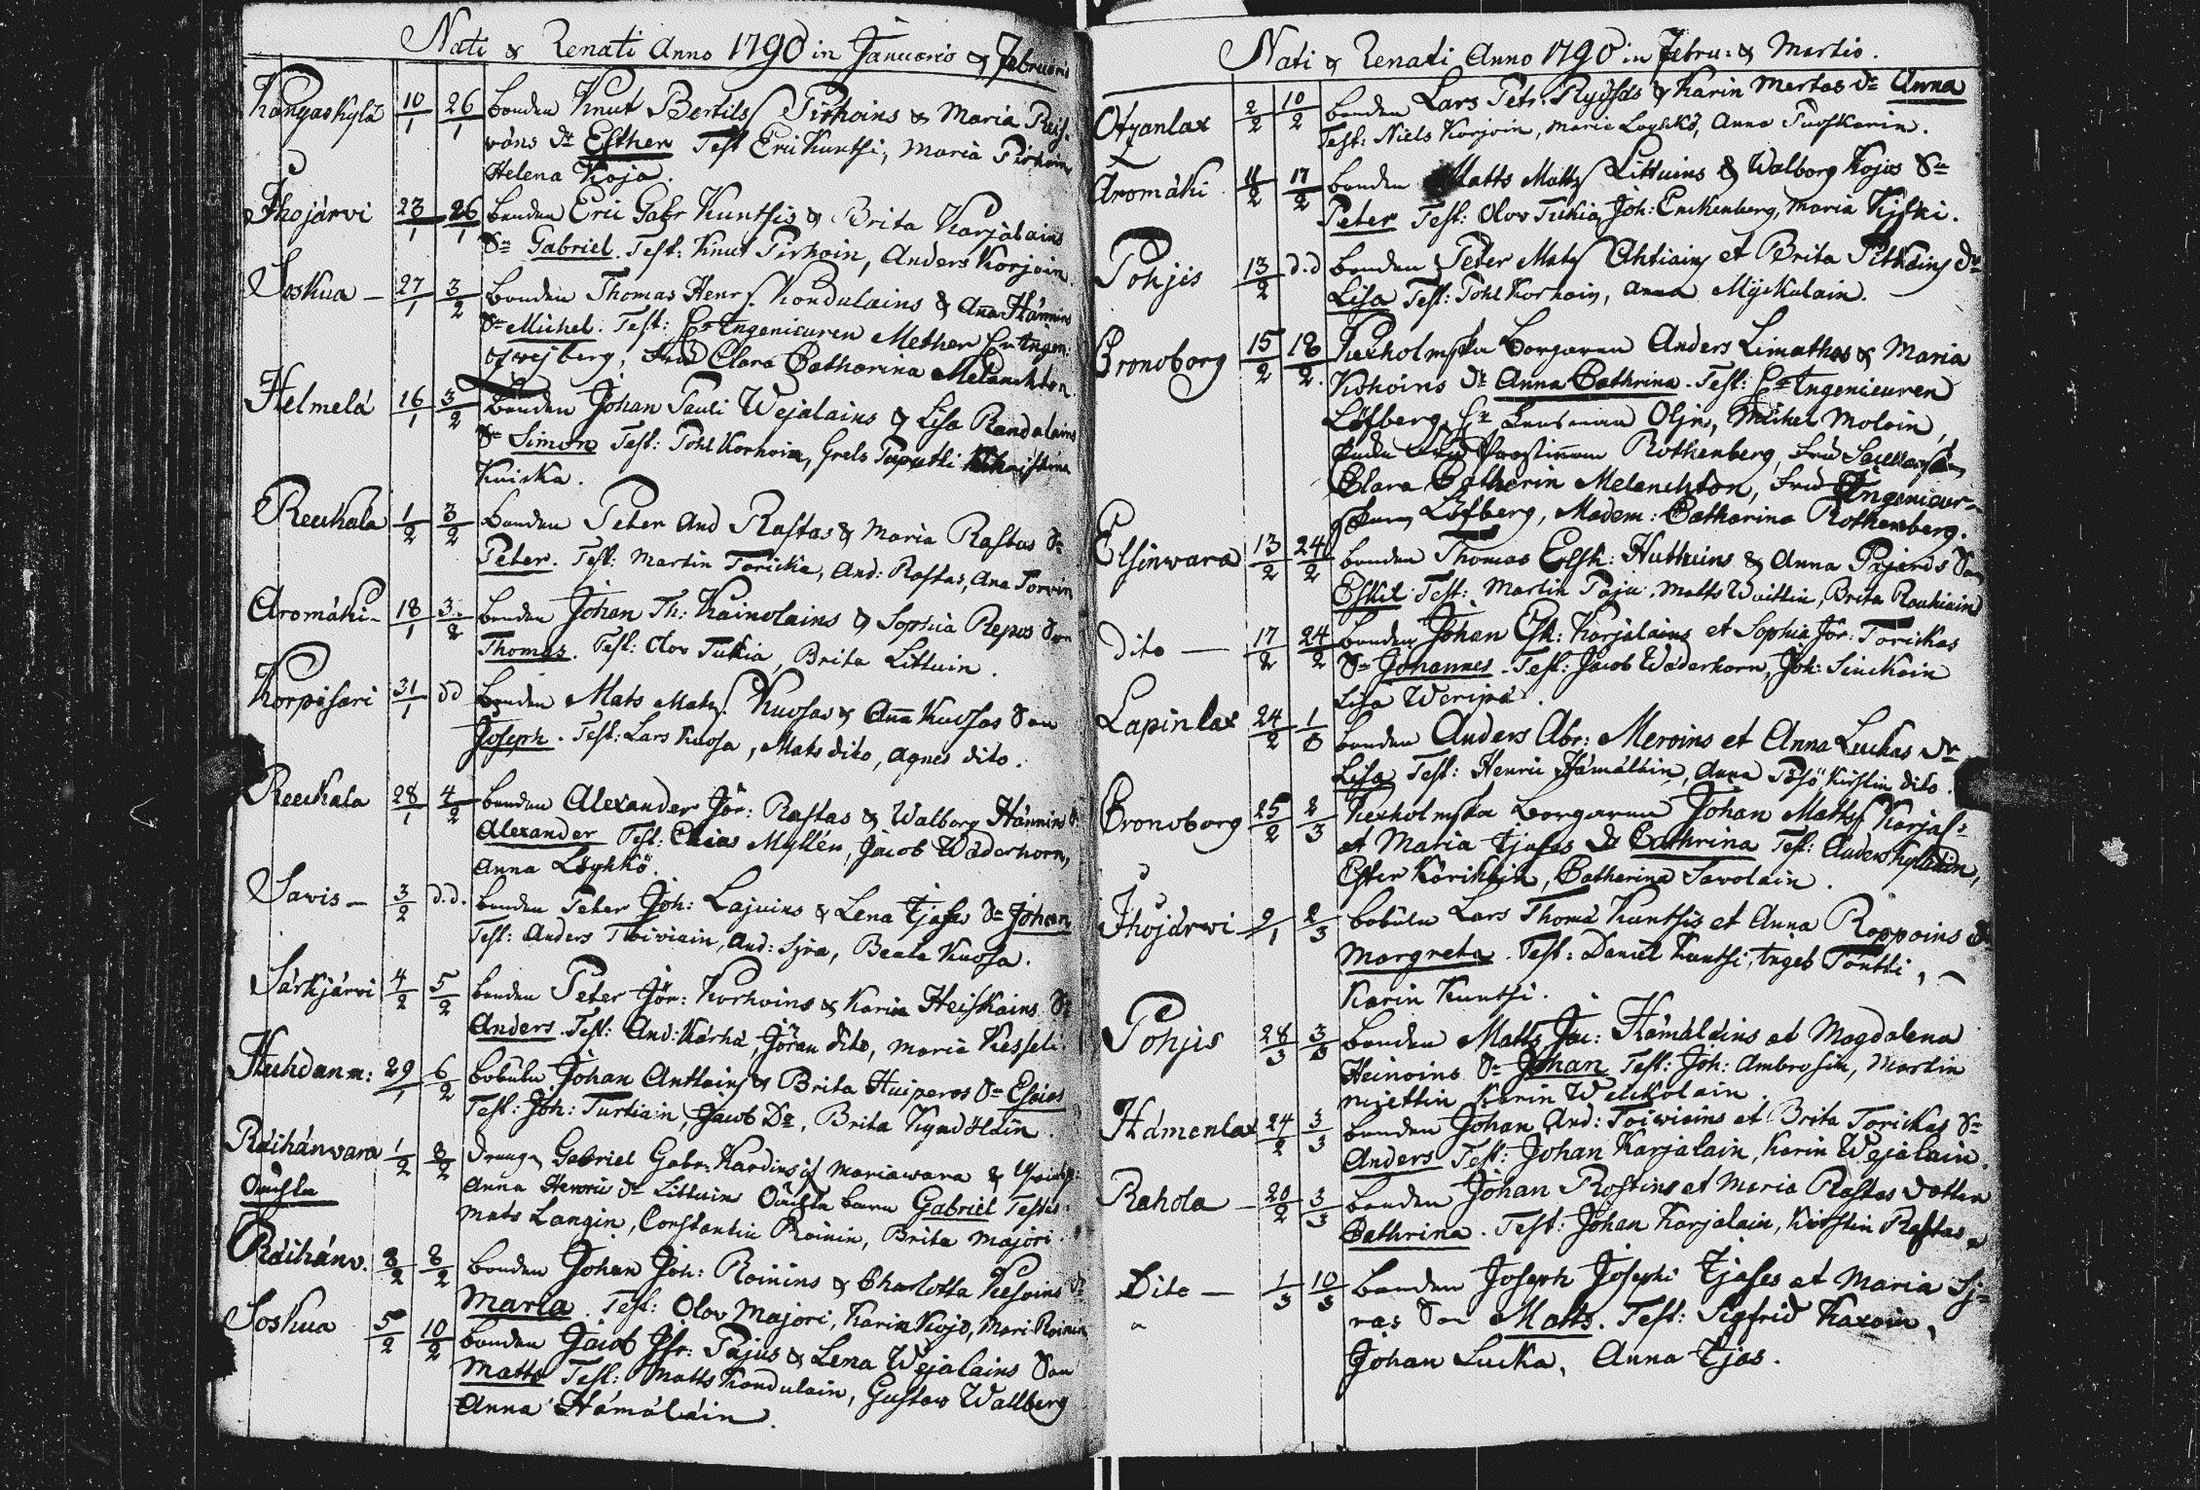 Nati & Renati Anno 1790 in Januario & Februario
Kangaskylä 10/1 26/1 bonden Knut Bertilss Pirhoins & Maria
Dr Esther Test Eric Kuntsi, Maria Pirhoin
Helena Koja.
Ihojärvi 23/1 26/1 bonden Eric Gabr Kuntsis & Brita Karjalains
Sn Gabriel. Test: Knut Pirhoin, Anders Korjoin
Soskua – 27/1 3/2 bonden Thomas Henr. Kondulains & Aña Hännins
Sn Michel. Test: Hr Ingenieuren Mether Hr Ingen:
Fru Clara Catharina Melanchton
Helmelä 16/1 3/2 bonden Johan Pauli Wejalains & Lisa Randalains
Sn Simon Test: Pohl Korhoin, Grels Paputti Christina
Kuicka.
Reuskala 1/2 3/2 bonden Peter And Rastas & Maria Rastas Sn
Peter. Test: Martin Toricka, And: Rastas, Ana Torvin
Aromäki – 18/1 3/2 bonden Johan Th: Kainolains & Sophia Repos Son
Thomas. Test: Olov Tukia, Brita Littuin.
Korpisari 31/1 dd bonden Mats Mats. Kuosas & Aña Kuosas Son
Joseph. Test: Lars Kuosa, Mats dito, Agnes dito.
Reuskala 28/1 4/2 bonden Alexander Jör: Rastas & Walborg Hännins S:
Alexander Test: Elias Myllén, Jacob Wäderhorn,
Anna Löyhkö.
Savis – 3/2 d.d. bonden Peter Joh: Lajuins & Lena Tjases Sn Johan
Test: Anders Toiviain, And: Sjra, Beata Kuosa.
Särkjärvi 4/2 5/2 bonden Peter Jör: Korhoins & Karin Heiskains S:
Anders. Test: And: Kärhä, Jöran dito, Maria Kesseli.
Huhdanm: 29/1 6/2 bobüln Johan Anttoins & Brita Huiperos Sn Esaias
Test: Joh: Turtiain, Jacob Do, Brita
Räihänvara 1/2 8/2 Dräng Gabriel Gabr: Kardins Mariawara &
Oäckta Anna Henric Dr Littuin Oäckta barn Gabriel Testes
Mats Langin, Constantin Roinin, Brita Majori.
Räihänv. 8/2 8/2 bonden Johan Joh: Roinins & Charlotta Kesoins Dr
Marta. Test: Olov Majori, Karin Kojo, Mari Roinin
Soskua 5/2 10/2 bonden Jacob Pajus & Lena Wejalains Son
Matts Test: Matts Kondulain, Gustav Wallberg
Anna Hämäläin.
Nati & Renati Anno 1790 in Febru: & Martio.
Otzanlax 2/2 10/2 bonden Lars Petr: & Karin Mertas Dr Anna
Test: Niels Korjoin, Maria Loyhkö, Anna Puoskarin.
Aromäki 11/2 17/2 bonden Matts Matts Littuins & Walborg Kojos Sn
Peter Test: Olov Tukia, Joh: Enckenberg, Maria Kjski.
Pohjis 13/2 d.d bonden Peter Mats Ahtiains et Brita Pitkäins Dr
Lisa Test: Pohl Korhoin, Anna Myckulain.
Cronoborg 15/2 18/2. Kexholmska borgaren Anders Limathas & Maria
Kohoins Dr Anna Cathrina. Test: Hr Ingenieuren
Löfberg, Hr Lensman Olin, Michel Moloin,
Rothenberg, Fru
Clara Catharin Melanchton, Fru Ingenieur-
skan Löfberg, Madem: Catharina Rothenberg.
Elsinwara 13/2 24/2 bonden Thomas Esk: Huttuins & Anna Pajaris Son
Eskil Test: Martin Paju, Matts Waittin, Brita Roukiain
Dito – 17/2 24/2 bonden Johan Esk: Karjalains et Sophia Jör: Torickas
Sn Johannes. Test: Jacob Wäderhorn, Joh: Sinckoin
Lisa Weripä.
Lapinlax 24/2 1/3 bonden Anders Abr: Meroins et Anna Luckas Dr
Lisa Test: Henric Hämäläin, Anna Pösö Kirstin dito.
Cronoborg 25/2 2/3 Kexholmska borgaren Johan Matts Karjal:
et Maria Tjases Dr Cathrina Test: Anders
Ester Körikkin, Catharina Savolain.
Ihojärwi – 9/1 2/3 bobüln Lars Thomä Kuntsis et Anna Roppoins Dr
Margreta. Test: Daniel Kuntsi, Ingeb Tontti,
Karin Kuntsi.
Pohjis 28/3 3/3 bonden Matts Jac: Hämäläins et Magdalena
Heinoins Sn Johan Test: Joh: Ambrosin, Martin
Miettin Karin Welikolain.
Hämenlax 24/2 3/3 bonden Johan And: Toiviains et Brita Torickas Sn
Anders Test: Johan Karjalain, Karin Wejalain.
Rahola – 20/2 3/3 bonden Johan Rostins et Maria Rastas dotter
Cathrina. Test: Johan Karjalain, Kirstin Rastas
Dito – 1/3 10/3 bonden Joseph Josephi Tjases et Maria Sj=
ras Son Matts. Test: Sigfrid Kaxoin,
Johan Lucka, Anna Tjas.